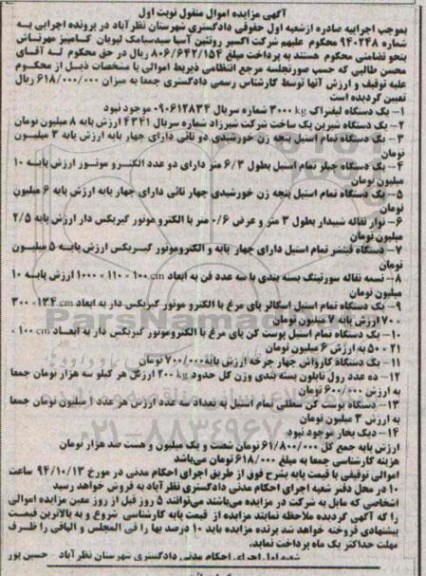 آگهی مزایده اموال منقول نوبت اول
بموجب اجراییه صادره ازشعبه اول حقوقی دادگستری شهرستان نظرآباد در پرونده اجرایی به
شماره ۹۴۰۲۴۸ محکوم علیهم شرکت اکسیر روتئین آسیا سیدسیامک لیویان کامبیز مهرتسانی
بنحو تضامنی محکوم هستند به پرداخت مبلغ ۸۰۶/۶۴۲/۱۵۴ ریال در حق محکوم له آقای
محسن طالبی که حسب صورتجلسه مرجع انتظامی ذیربط اموالی با مشخصات ذیل از محکوم
علیه توقیف و ارزش آنها توسط کارشناس رسمی دادگستری جمعا به میزان ۶۱۸/۰۰۰/۰۰۰ ریال
تعیین گردیده است
۱- یک دستگاه لیفتراک ۳۰۰۰ kg شماره سریال ۰۹۰۶۱۲۸۳۴ موجود نبود
۲- یک دستگاه شیرین پک ساخت شرکت شیرزاد شماره سریال ۴۳۴۱ ارزش پایه ۸ میلیون تومان
۳- یک دستگاه تمام استیل پنجه زن خورشیدی دو تائی دارای چهار پایه ارزش پایه ۳ میلیون
تومان
۴- یک دستگاه چیلر تمام استیل بطول ۶/۳ متر دارای دو عدد الکترو موتور ارزش پایه ۱۰
میلیون تومان
۵- یک دستگاه تمام استیل پنجه زن خورشیدی چهار تائی دارای چهار پایه ارزش پایه ۶ میلیون
تومان
۶- نوار نقاله شیبدار بطول ۳ متر و عرض ۰/۶ متر با الکترو موتور گیربکس دار ارزش پایه ۲/۵
میلیون تومان
۷- دستگاه تمام استیل دارای چهار پایه و الکتروموتور گیربکس ارزش پایه ۵ میلیون
تومان
۸- تسمه نقاله سورتینگ بسته بندی با سه عدد فن به ابعاد ۱۰۰ cm - ۱۱۰ - ۱۰۰۰ ارزش پایه ۱۰
میلیون تومان
۹- یک دستگاه تمام استیل اسکالر پای مرغ با الکترو موتور گیربکس دار به ابعاد ۱۳۴ cm - ۳۰۰
- ۷۰ ارزش پایه ۷ میلیون تومان
۱۰- یک دستگاه تمام استیل پوست کن پای مرغ با الکتروموتور گیربکس دار به ابعاد ۱۰۰ cm -
۲۱ - ۵۰ به ارزش ۶ میلیون تومان
۱۱- یک دستگاه کارواش چهار چرخه ارزش پایه ۷۰۰/۰۰۰ تومان
۱۲- ده عدد رول نایلون بسته بندی وزن کل حدود ۲۰۰ kg ارزش هر کیلو سه هزار تومان جمعا
به ارزش ۶۰۰/۰۰۰ تومان
۱۳- دستگاه پوست کن سطلی تمام استیل به تعداد سه عدد ارزش هر عدد ۱ میلیون تومان جمعا
به ارزش ۳ میلیون تومان
۱۴- دیگ بخار موجود نبود
ارزش پایه جمع کل ۶۱/۸۰۰/۰۰۰ تومان شصت و یک میلیون و هست صد هزار تومان
هزینه کارشناسی جمعا به مبلغ ۶۱۸/۰۰۰ تومان می‌باشد
اموالی توقیفی با قیمت پایه بشرح فوق از طریق اجرای احکام مدنی در مورخ ۹۴/۱۰/۱۳ ساعت
۱۰ در محل دفتر شعبه اجرای احکام مدنی دادگستری نظرآباد به فروش خواهد رسید
اشخاصی که مایل به شرکت در مزایده می‌باشند می‌توانند ۵ روز قبل از روز معین مزایده اموالی
را که آگهی گردیده ملاحظه نمایند مزایده از قیمت پایه کارشناسی شروع و به بالاترین قیمت
پیشنهادی فروخته خواهد شد برنده مزایده باید ۱۰ درصد بها را فی المجلس و الباقی را ظرف
مهلت حداکثر یک ماه پرداخت نماید.
شعبه اول اجرای احکام مدنی دادگستری شهرستان نظرآباد - حسین پور
ParsNamad
۰۲۱-۸۸۳۴۹۶۷۰